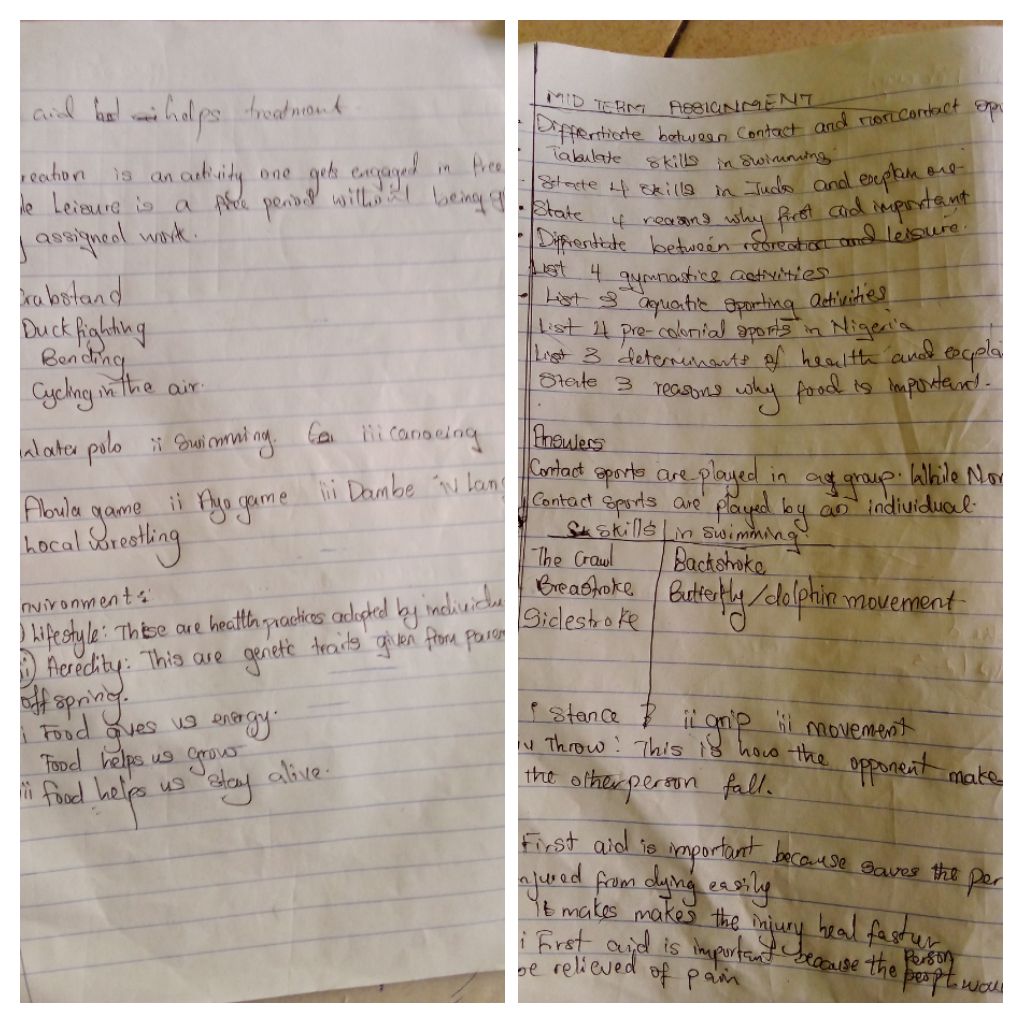 aid helps treatment
reation is an activity one gets engaged in free
le Leisure is a free period without being g
assigned work.
rabstand
Duckfighting
Bending
Cycling in the air.
water polo ii Swimming. iii canoeing
Abula game ii Ayo game iii Dambe iv Lan
Local wrestling
nvironments:
) Lifestyle: These are heatlth practices adopted by individu
ii) Heredity: This are genetic traits given from paren
offspring.
i Food gives us energy.
Food helps us grow
ii food helps us stay alive.
MID TERM ASSIGNMENT
Differtiate between Contact and noncontact spo
Tabulate skills in swimming.
State 4 skills in Judo and explain one-
State 4 reasons why first aid important
Diffrentiate between recreation and leisure.
List 4 gymnastics activities
List 3 aquatic sporting activities
List 4 pre-colonial sports in Nigeria
List 3 determinants of health and expla
State 3 reasons why food is important.
Answers
Contact sports are played in group. While Non
Contact sports are played by an individual.
skills in swimming
The Crawl Backstroke
Breastroke Butterfly/dolphin movement
Sidestroke
i Stance ii grip iii movement
iv Throw: This is how the opponent make
the other person fall.
First aid is important because saves the per
njured from dying easily
It makes makes the injury heal faster
i First aid is important because the person wou
be relieved of pain